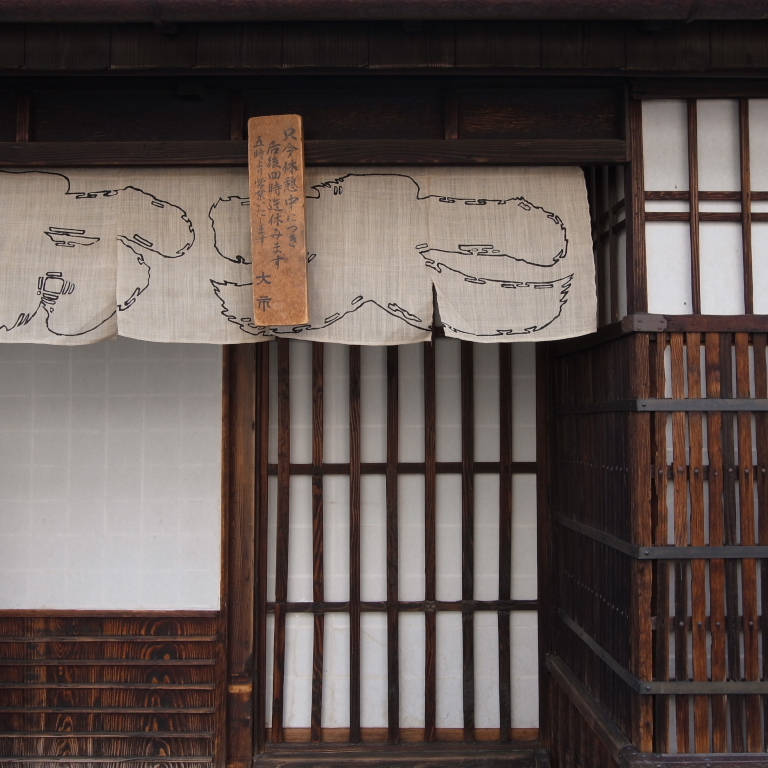 只今休憩中につき
后後四時迄休みます
五時より営業いたします
大市